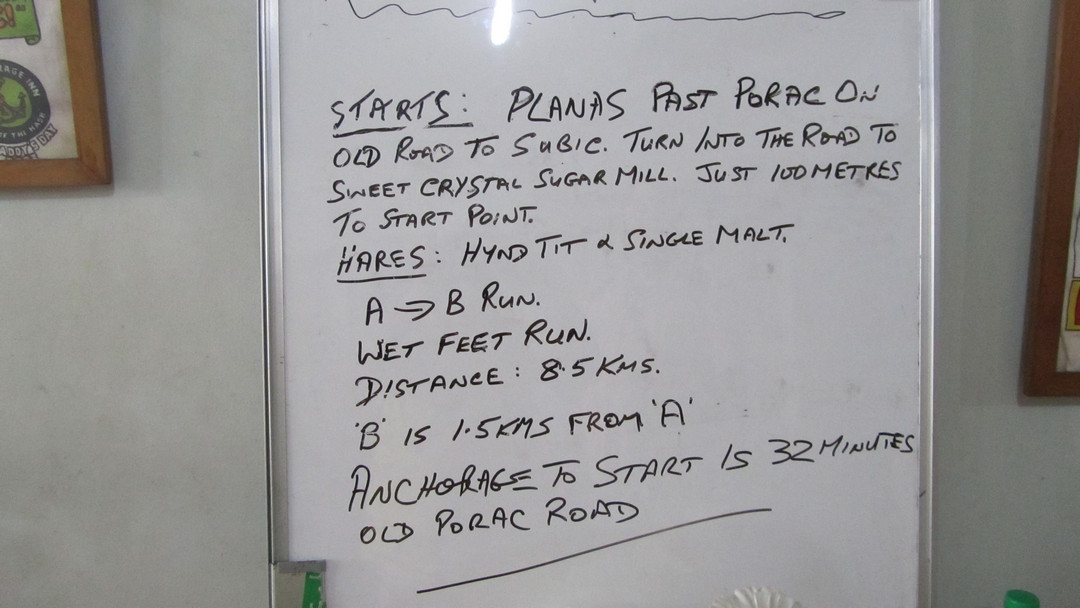 STARTS: PLANAS PAST PORAC ON
OLD ROAD TO SUBIC. TURN INTO THE ROAD TO
SWEET CRYSTAL SUGAR MILL. JUST 100 METRES
TO START POINT.
HARES: HYND TIT & SINGLE MALT.
A → B RUN.
WET FEET RUN.
DISTANCE: 8.5 KMS.
'B' IS 1.5 KMS FROM 'A'
ANCHORAGE TO START IS 32 MINUTES
OLD PORAC ROAD